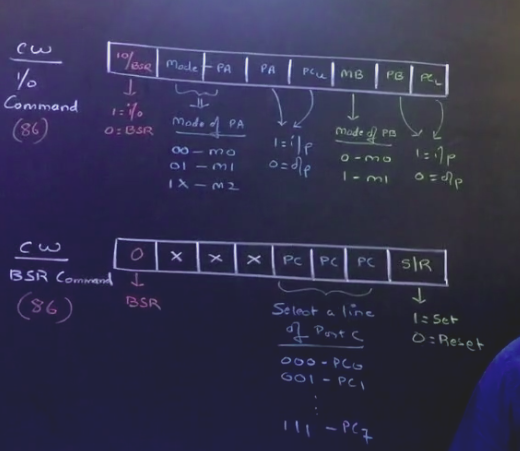 CW
I/O
Command
(86)
IO/BSR Mode - PA PA PCU MB PB PCL
1 = i/o
0 = BSR
Mode of PA
00 - M0
01 - M1
1X - M2
1 = i/p
0 = o/p
Mode of PB
0 - M0
1 - M1
1 = i/p
0 = o/p
CW
BSR Command
(86)
0 X X X PC PC PC S/R
BSR
Select a line
of Port C
000 - PC0
001 - PC1
⋮
111 - PC7
1 = Set
0 = Reset